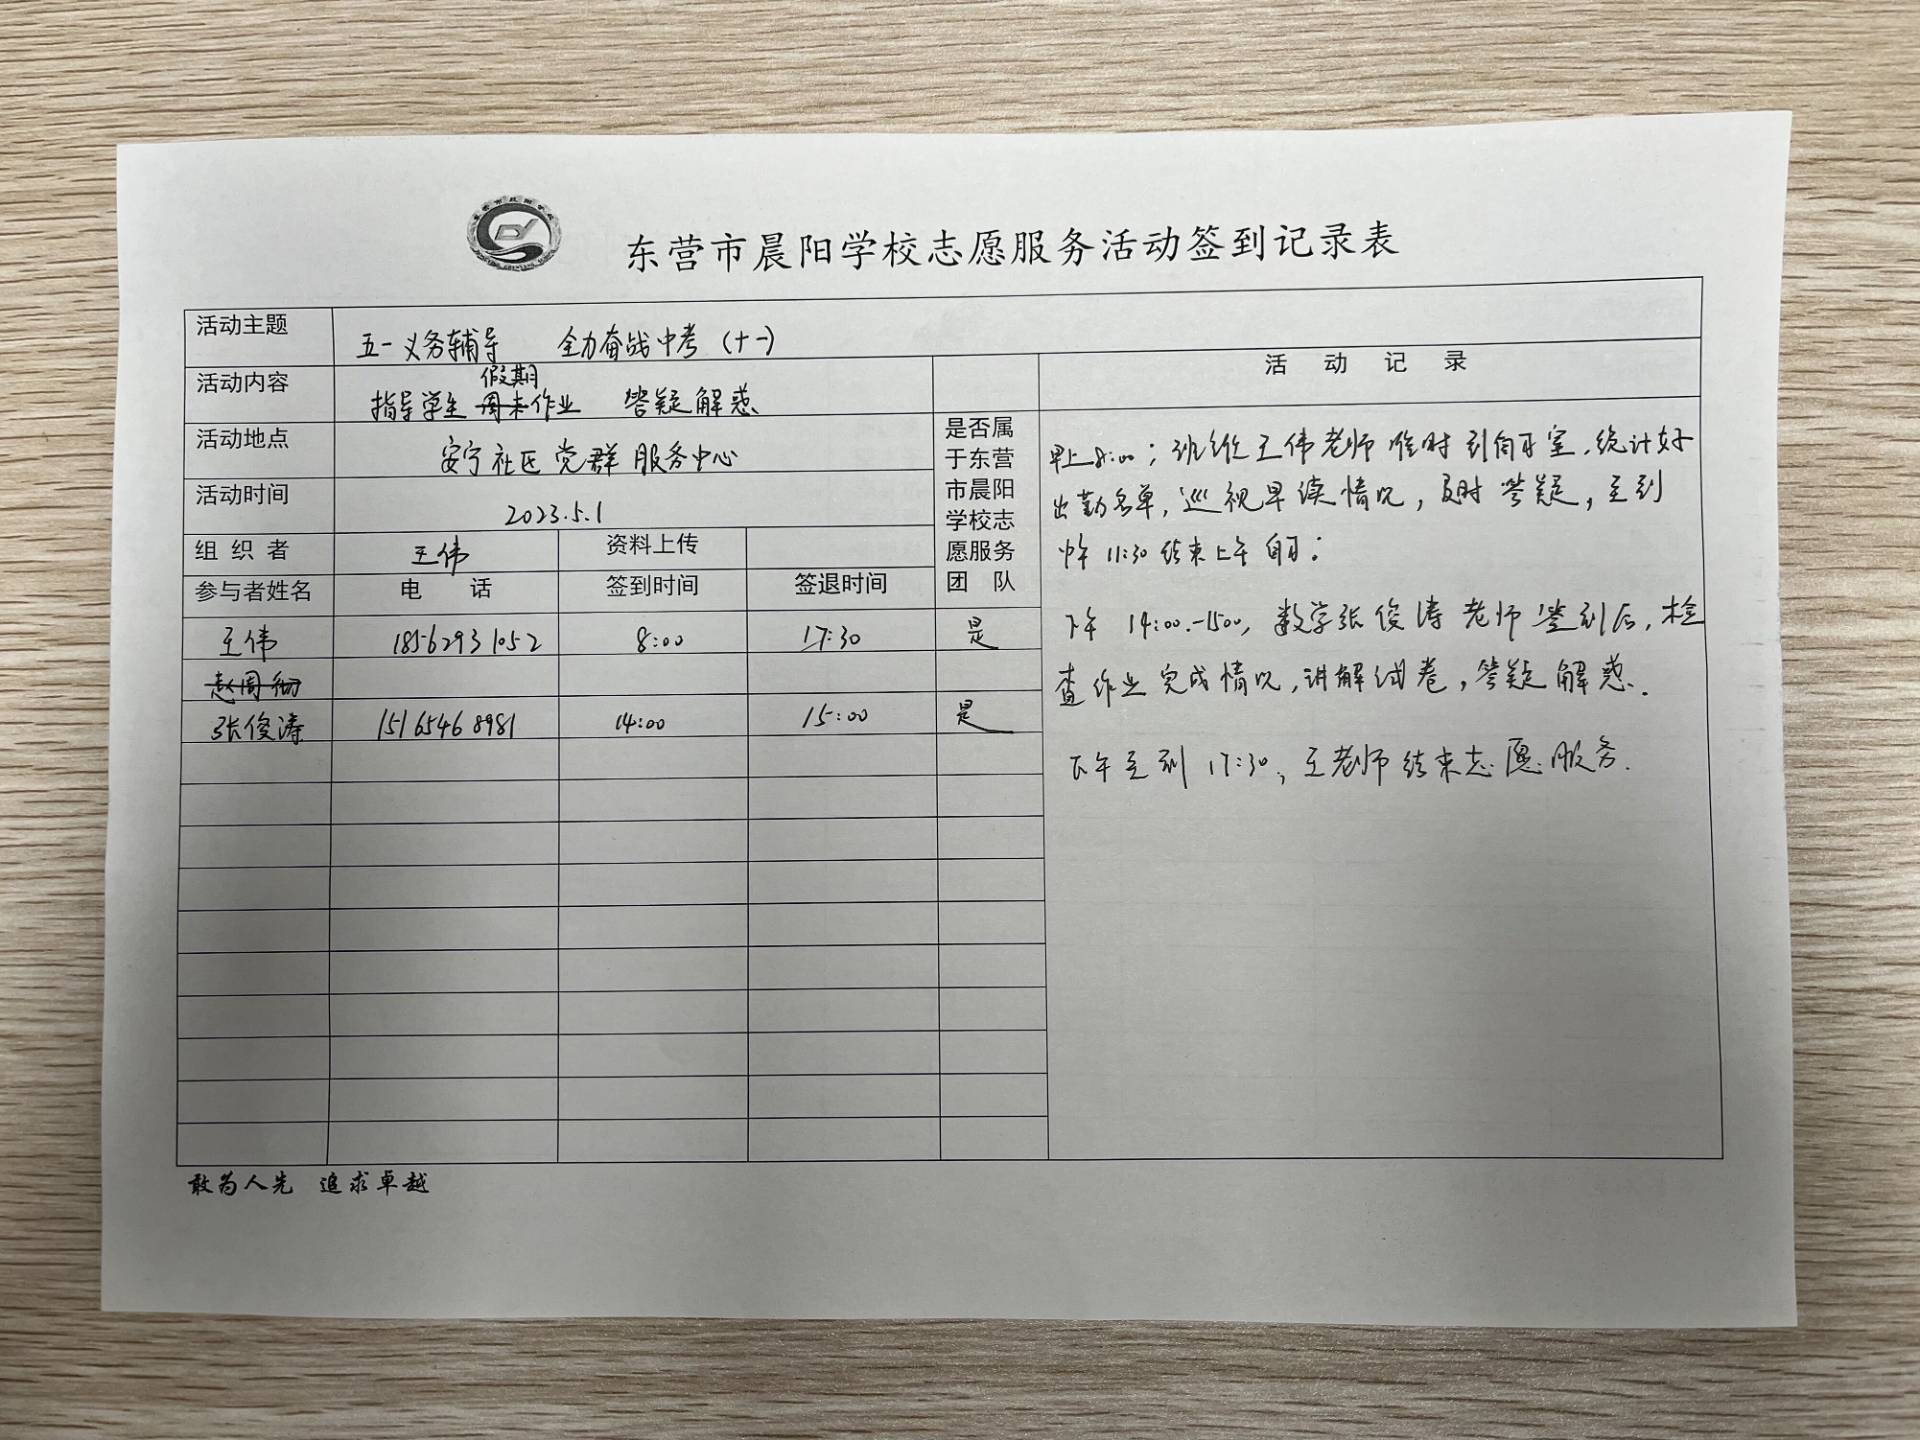 东营市晨阳学校志愿服务活动签到记录表
活动主题 五一义务辅导 全力奋战中考（十一）
活动内容 指导学生假期作业 答疑解惑
活动地点 安宁社区党群服务中心
活动时间 2023.5.1
组织者 王伟 资料上传
参与者姓名 电话 签到时间 签退时间
是否属
于东营
市晨阳
学校志
愿服务
团队
王伟 18562931052 8:00 17:30 是
张俊涛 15165468981 14:00 15:00 是
活动记录
早上8:00；班级王伟老师准时到自习室，统计好
出勤名单，巡视早读情况，及时答疑，直到
中午11:30结束上午自习；
下午14:00-1500，数学张俊涛老师签到后，检
查作业完成情况，讲解试卷，答疑解惑.
下午直到17:30，王老师结束志愿服务.
敢为人先 追求卓越